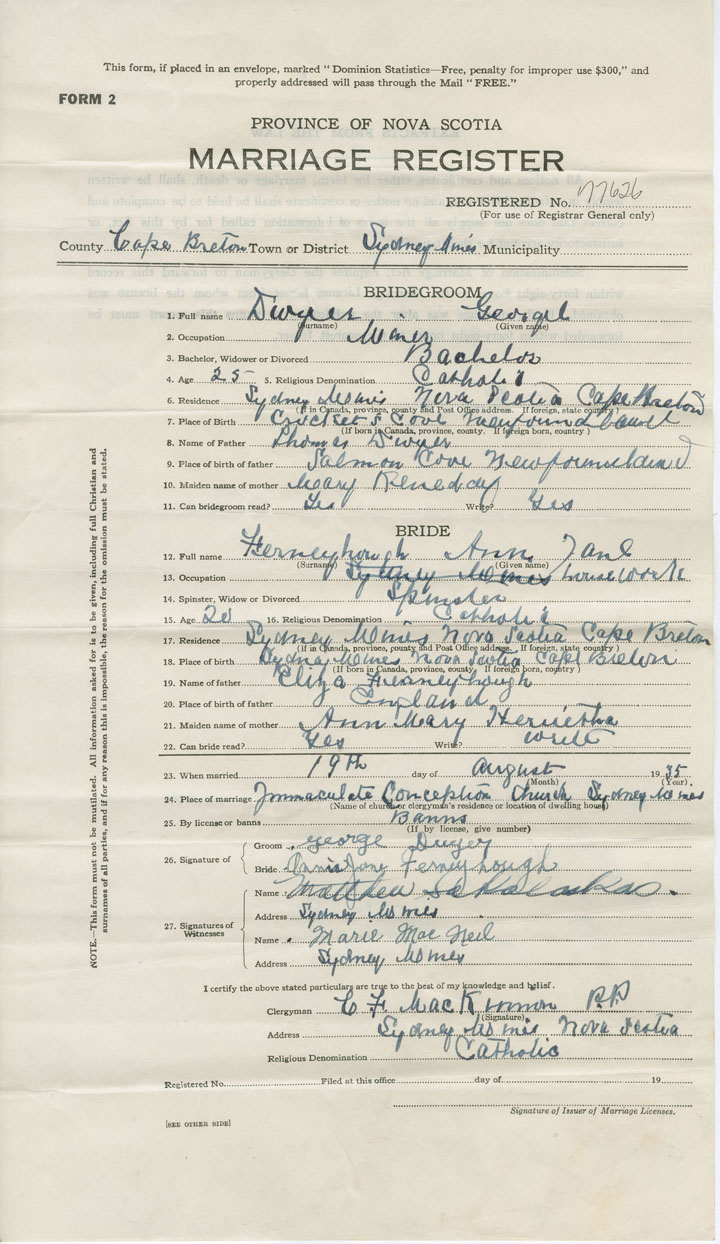 This form, if placed in an envelope, marked "Dominion Statistics—Free, penalty for improper use $300," and
properly addressed will pass through the Mail "FREE."
FORM 2
PROVINCE OF NOVA SCOTIA
MARRIAGE REGISTER
REGISTERED No. 77626
(For use of Registrar General only)
County Cape Breton Town or District Sydney Mines Municipality
BRIDEGROOM
1. Full name Dwyer George
(Surname) (Given name)
2. Occupation Miner
3. Bachelor, Widower or Divorced Bachelor
4. Age 25 5. Religious Denomination Catholic
6. Residence Sydney Mines Nova Scotia Cape Breton
(If in Canada, province, county and Post Office address. If foreign, state country)
7. Place of Birth Cove Newfoundland
(If born in Canada, province, county. If foreign born, country)
8. Name of Father Thomas Dwyer
9. Place of birth of father Salmon Cove Newfoundland
10. Maiden name of mother Mary Kenedday
11. Can bridegroom read? Yes Write? Yes
BRIDE
12. Full name Ferneyhough Ann Jane
(Surname) (Given name)
13. Occupation Sydney Mines housework
14. Spinster, Widow or Divorced Spinster
15. Age 20 16. Religious Denomination Catholic
17. Residence Sydney Mines Nova Scotia Cape Breton
(If in Canada, province, county and Post Office address. If foreign, state country)
18. Place of birth Sydney Mines Nova Scotia Cape Breton
(If born in Canada, province, county. If foreign born, country)
19. Name of father Eliga Ferneyhough
20. Place of birth of father England
21. Maiden name of mother Ann Mary Henrietha
22. Can bride read? Yes Write? write
23. When married 19th day of August 1935
(Month) (Year)
24. Place of marriage Immaculate Conception Church Sydney Mines
(Name of church or clergyman's residence or location of dwelling house)
25. By license or banns Banns
(If by license, give number)
26. Signature of
Groom George Dwyer
Bride Annie Jane Ferneyhough
27. Signatures of Witnesses
Name Matthew
Address Sydney Mines
Name Marie Mac Neil
Address Sydney Mines
I certify the above stated particulars are true to the best of my knowledge and belief.
Clergyman C F MacKinnon P.P
(Signature)
Address Sydney Mines Nova Scotia
Religious Denomination Catholic
Registered No. Filed at this office day of 19
Signature of Issuer of Marriage Licenses.
[SEE OTHER SIDE]
NOTE.—This form must not be mutilated. All information asked for is to be given, including full Christian and
surnames of all parties, and if for any reason this is impossible, the reason for the omission must be stated.